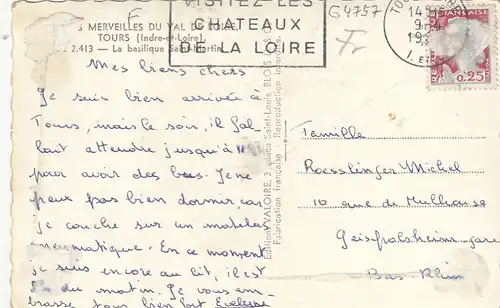 VISITEZ LES
CHATEAUX
DE LA LOIRE
G4757
Fr
F
MERVEILLES DU VAL DE LOIRE
TOURS (Indre-et-Loire)
2.413 — La basilique Saint-Martin
14
9
19
FRANÇAISE
0,25
Mes biens chers
Je suis bien arrivée à
Tours, mais le soir, il fal
lait attendre jusqu'à 11
pour avoir des bus. Je ne
peux pas bien dormir car
je couche sur un matelas
pneumatique. En ce moment
je suis encore au lit, il est
du matin. Je vous em
brasse tous bien fort Evelyne
Editions VALOIRE, place Saint-Louis, BLOIS
Fabrication française - Reproduction interdite
Famille
Roesslinger Michel
10 rue de Mulhouse
Geispolsheim gare
Bas Rhin